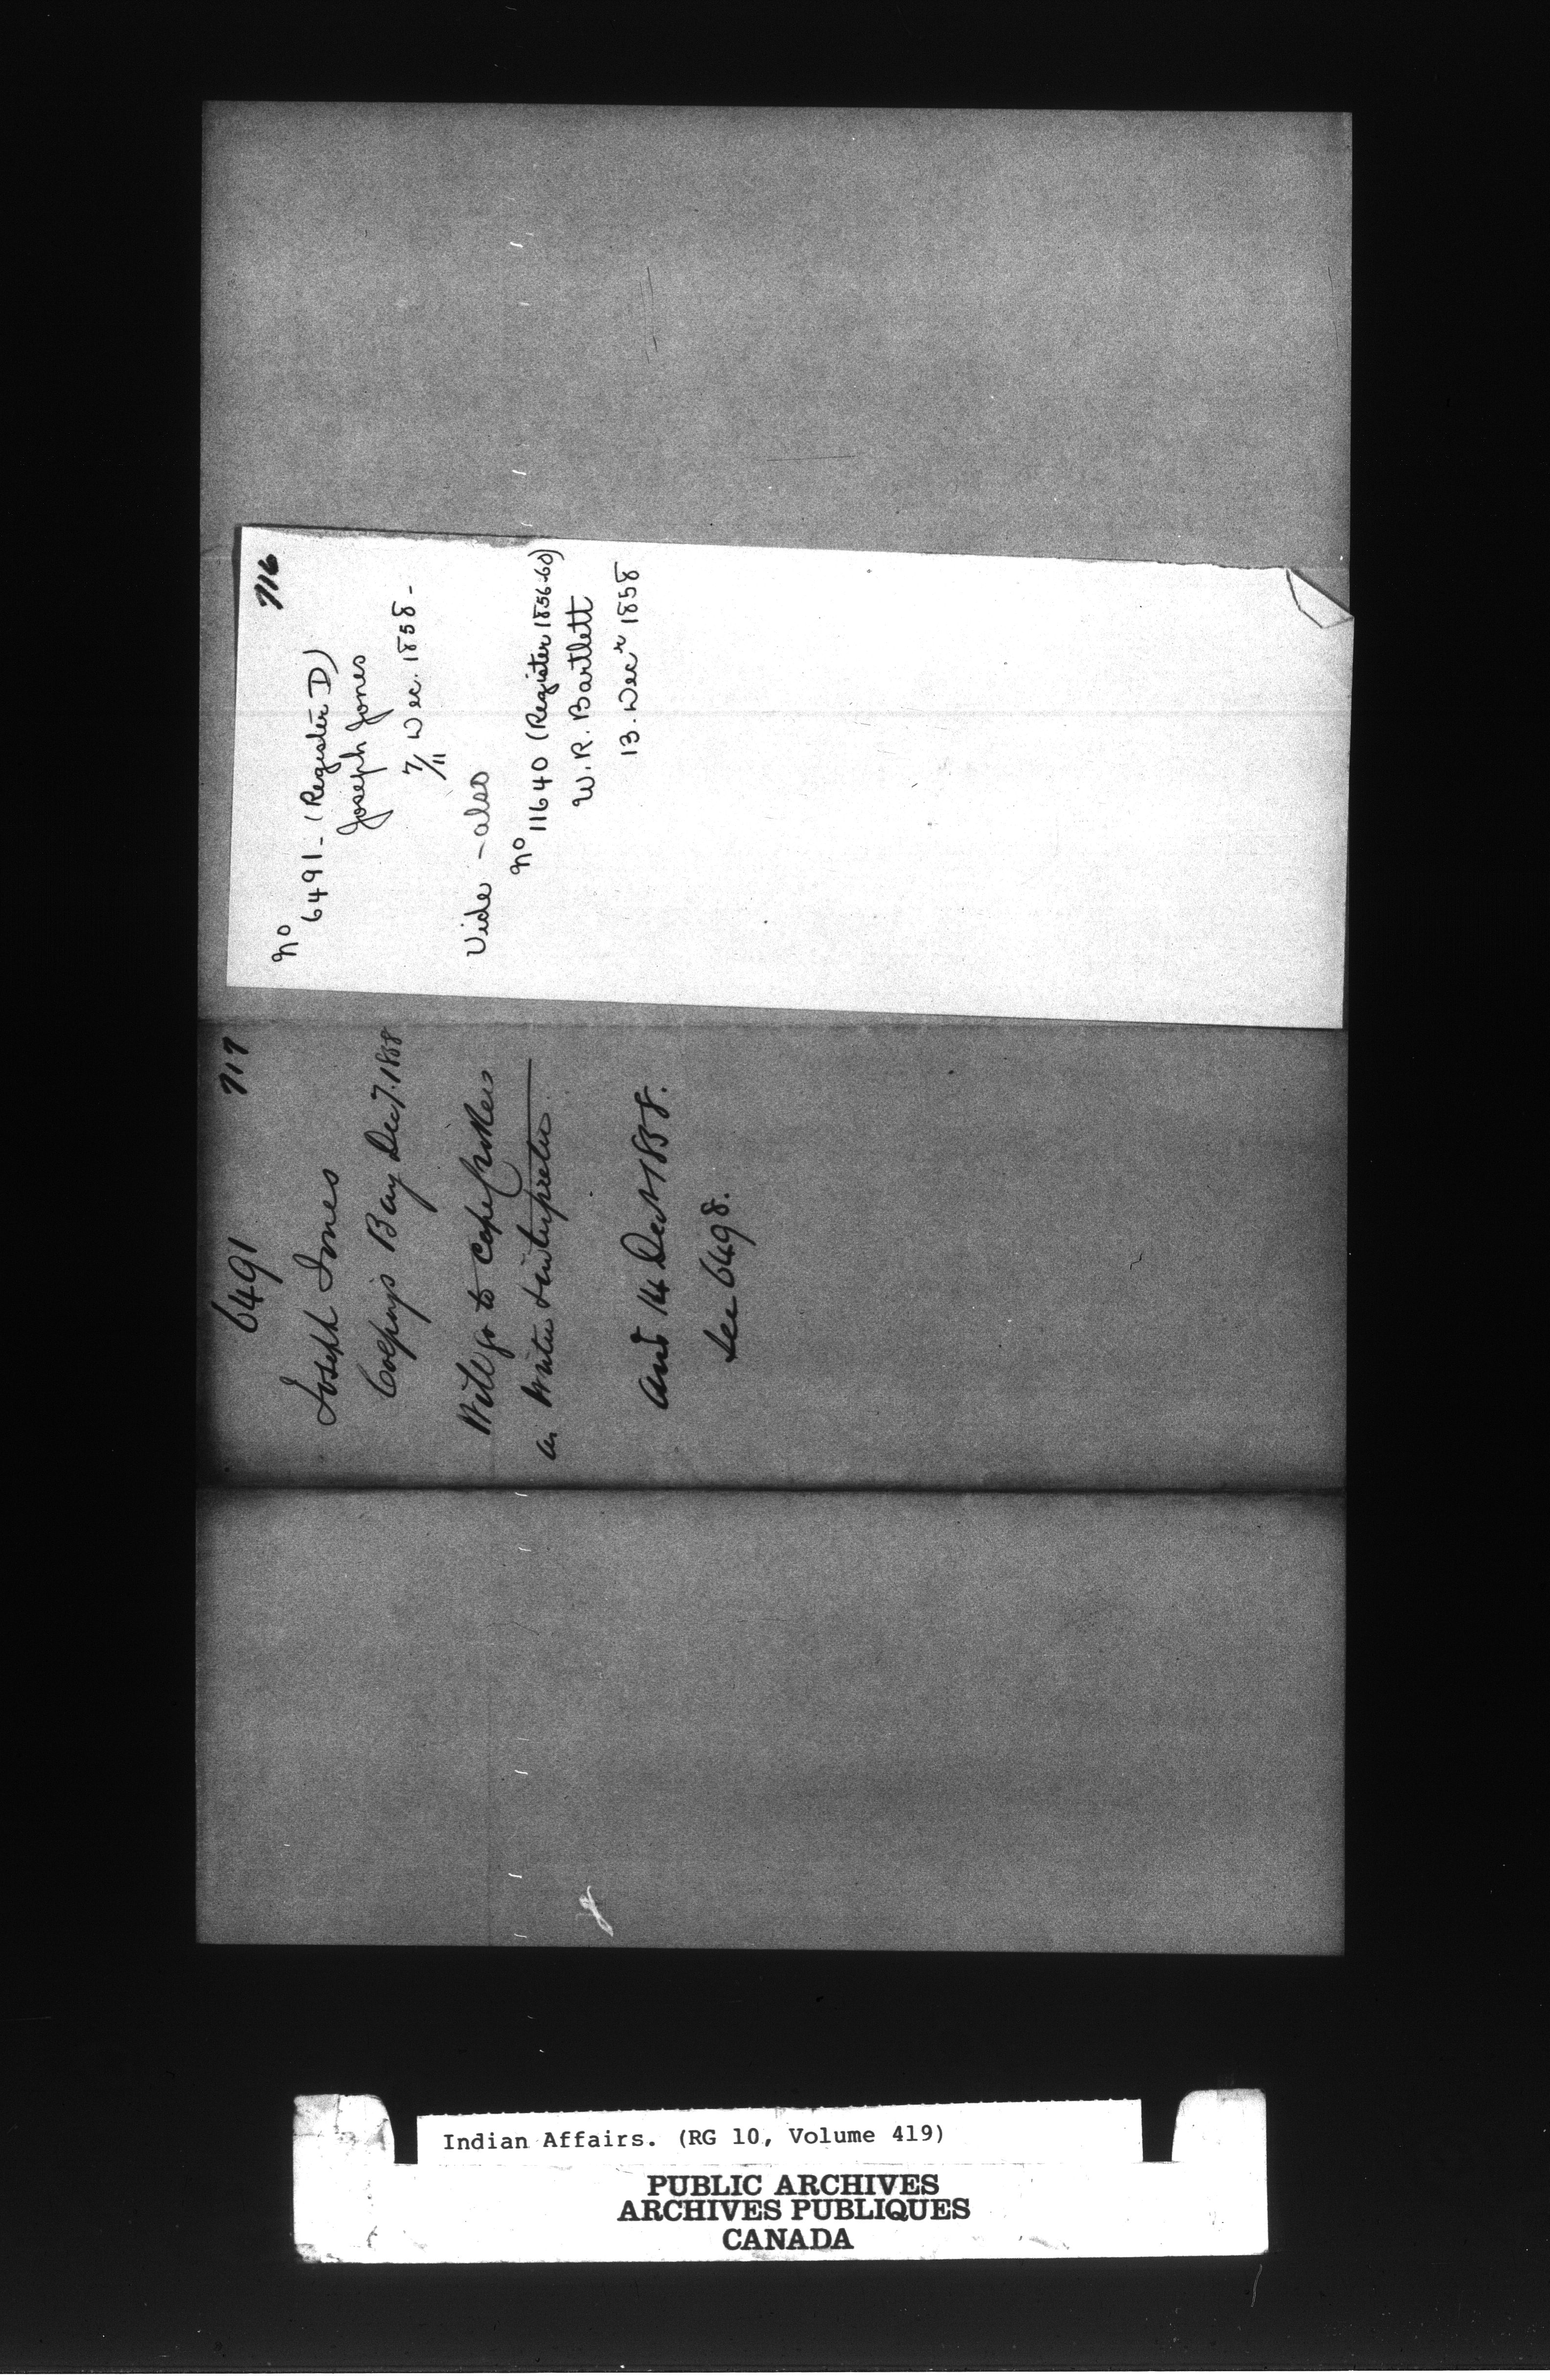 716
No 6491 - (Register D)
Joseph Jones
7/11 Dec. 1858 -
Vide - also
No 11640 (Register 1856-60)
W. R. Bartlett
13. Decr 1858
717
6491
Joseph Jones
Colpoys Bay Dec 7. 1858
Will go to Cape Crokers
as Writer & interpreter
and 14 Decr 1858.
See 6498.
Indian Affairs. (RG 10, Volume 419)
PUBLIC ARCHIVES
ARCHIVES PUBLIQUES
CANADA